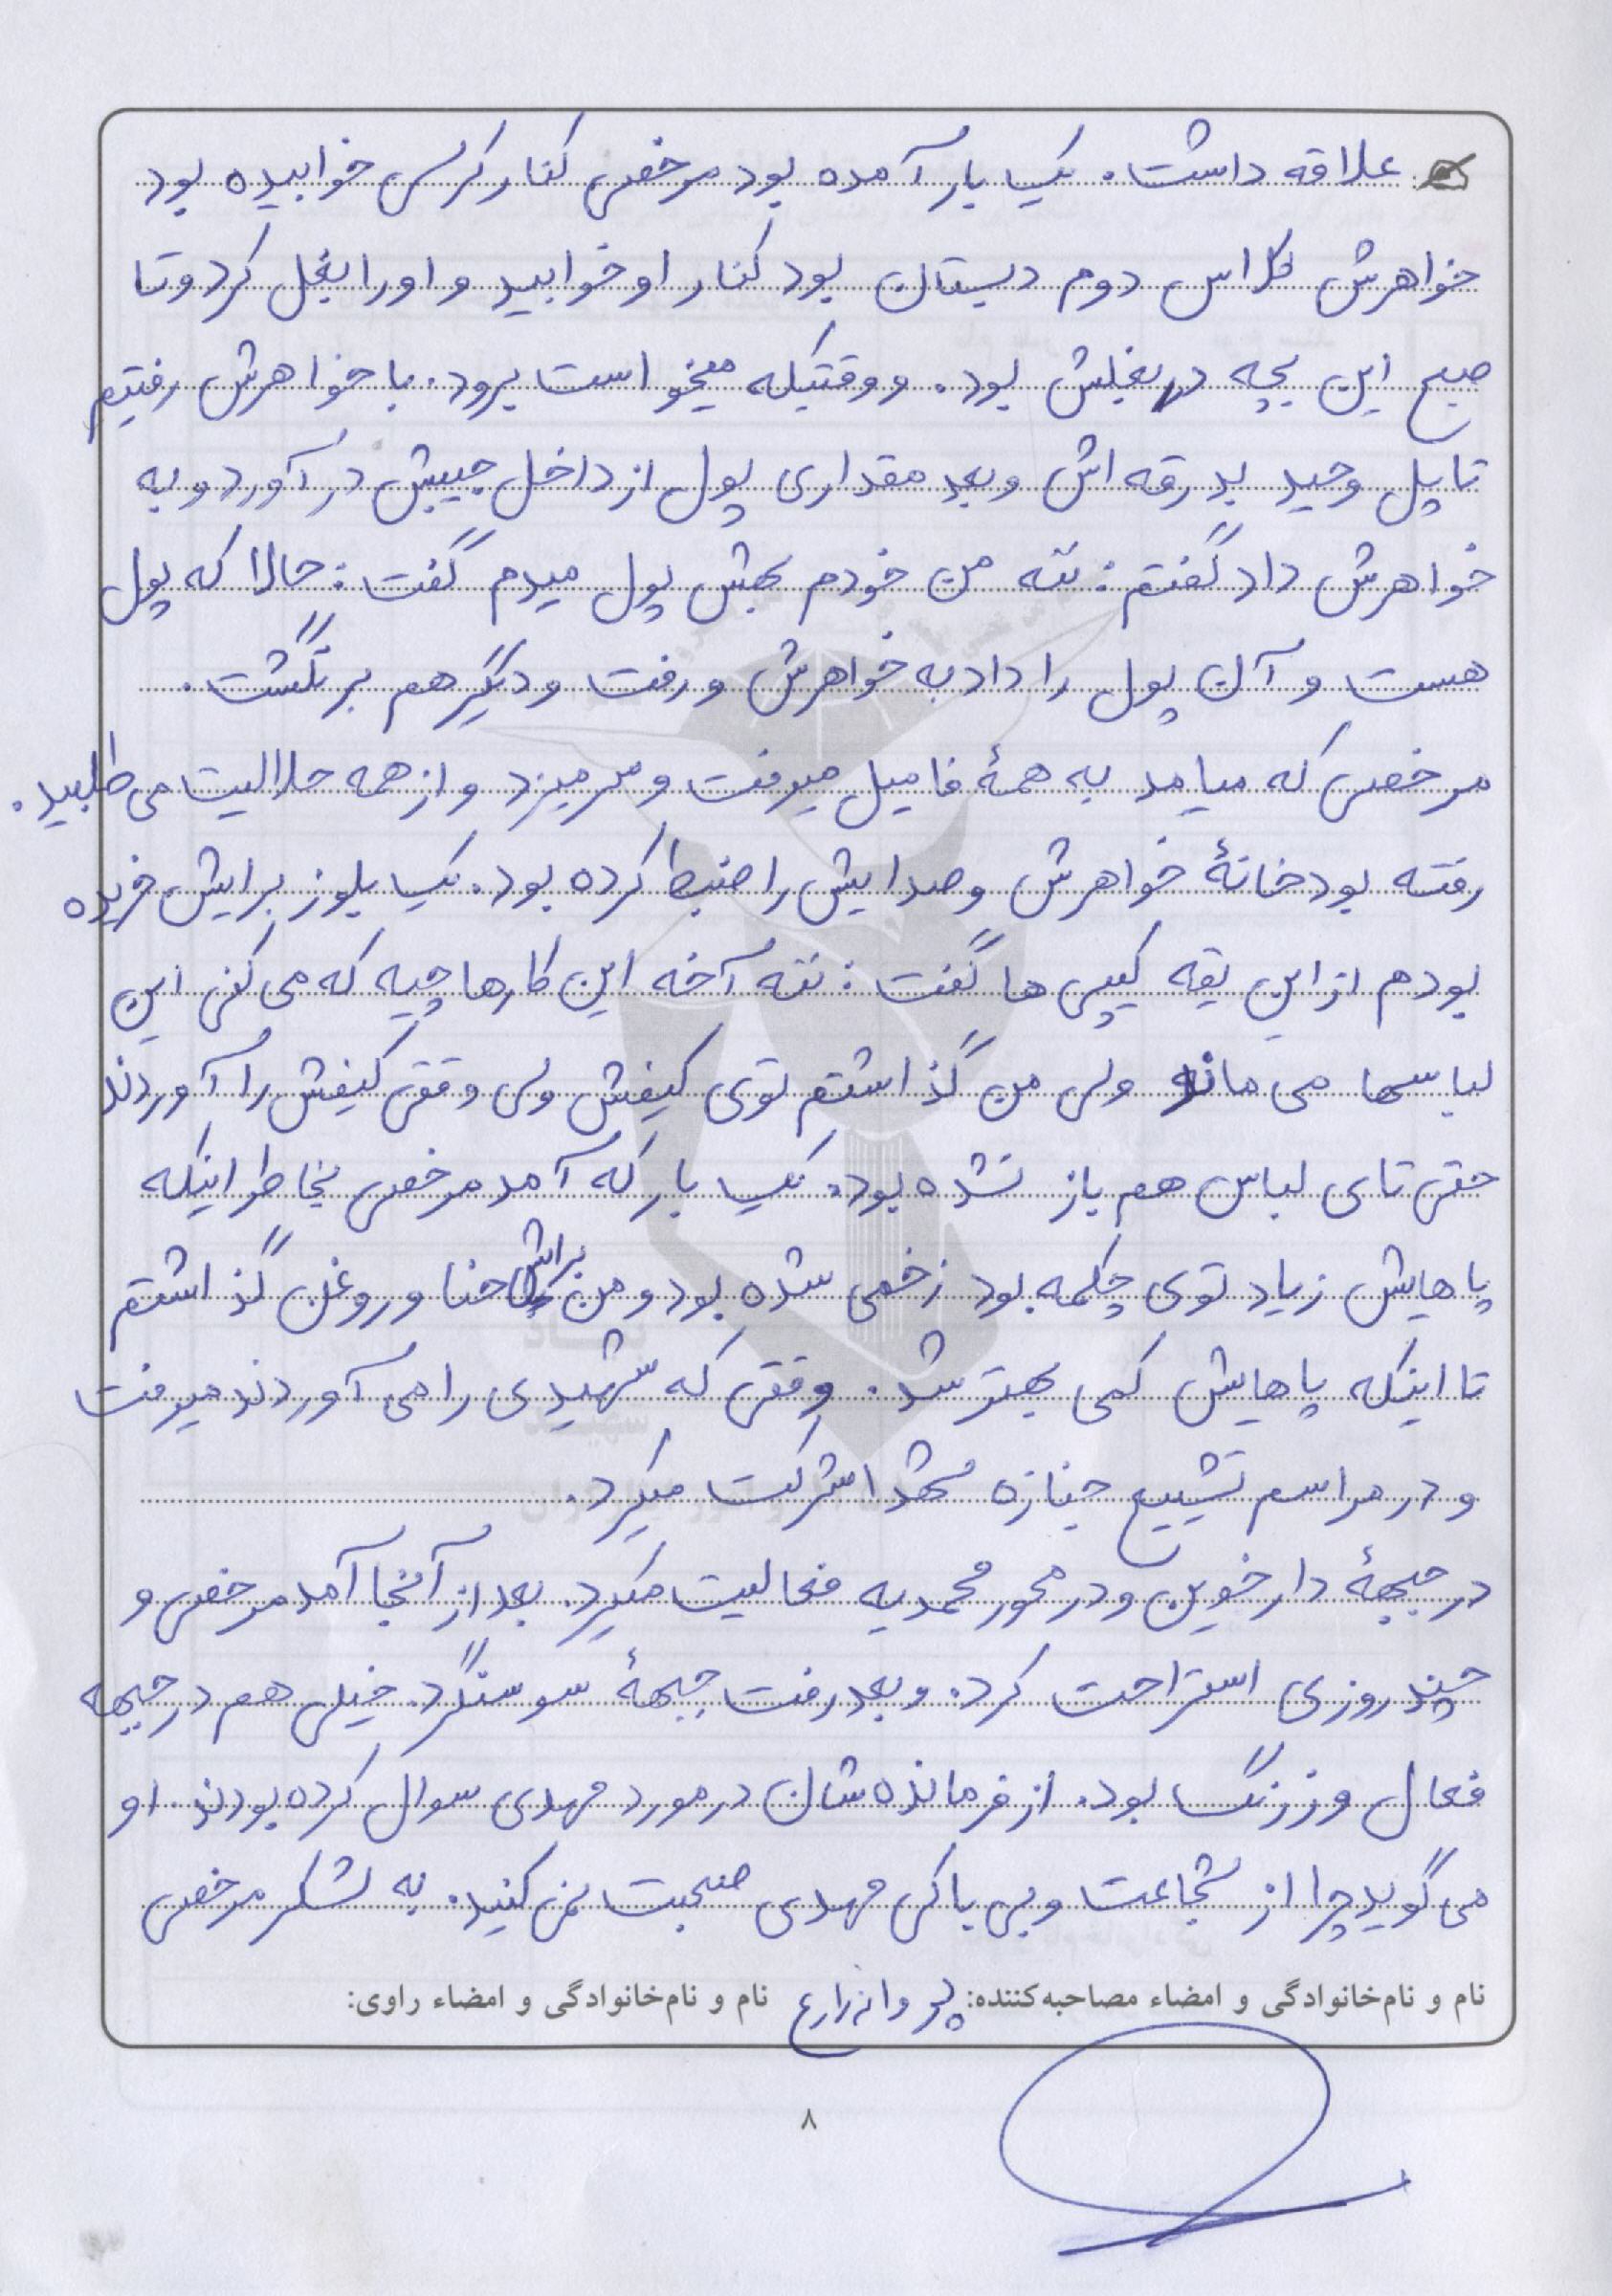 علاقه داشت. یک بار آمده بود مرخصی کنار کرسی خوابیده بود
خواهرش کلاس دوم دبستان بود کنار او خوابید و او را بغل کرد و تا
صبح این بچه در بغلش بود. و وقتیکه میخواست برود. با خواهرش رفتیم
تا پل وحید بدرقه اش و بعد مقداری پول از داخل جیبش در آورد و به
خواهرش داد گفتم: ننه من خودم بهش پول میدم گفت: حالا که پول
هست و آن پول را داد به خواهرش و رفت و دیگر هم بر نگشت.
مرخصی که میامد به همهٔ فامیل میرفت و سر میزد و از همه حلالیت می طلبید.
رفته بود خانهٔ خواهرش و صدایش را ضبط کرده بود. یک بلوز برایش خریده
بودم از این یقه کیپی ها گفت: ننه آخه این کارها چیه که می کنی این
لباسها می ماند ولی من گذاشتم توی کیفش ولی وقتی کیفش را آوردند
حتی تای لباس هم باز نشده بود. یک بار که آمد مرخصی بخاطر اینکه
پاهایش زیاد توی چکمه بود زخمی شده بود و من براش حنا و روغن گذاشتم
تا اینکه پاهایش کمی بهتر شد. وقتی که شهیدی را می آوردند میرفت
و در مراسم تشییع جنازه شهدا شرکت میکرد.
در جبههٔ دارخوین و در محور محمدیه فعالیت میکرد. بعد از آنجا آمد مرخصی و
چند روزی استراحت کرد. و بعد رفت جبههٔ سوسنگرد. خیلی هم در جبهه
فعال و زرنگ بود. از فرمانده شان در مورد مهدی سوال کرده بودند. او
می گوید چرا از شجاعت و بی باکی مهدی صحبت نمی کنید. به لشکر مرخصی
نام و نام‌خانوادگی و امضاء مصاحبه‌کننده: پروانه زارع نام و نام‌خانوادگی و امضاء راوی:
۸